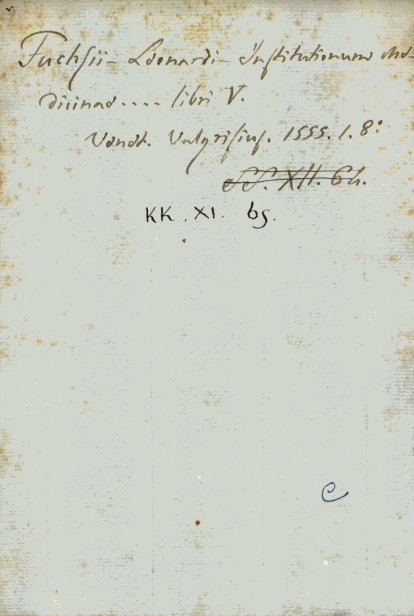 Fuchsii - Leonardi - Institutionum Me-
dicinae .... libri V.
Venet. Valgrisius. 1555. 1. 8°
SS. XII. 64.
KK. XI. 65.
e